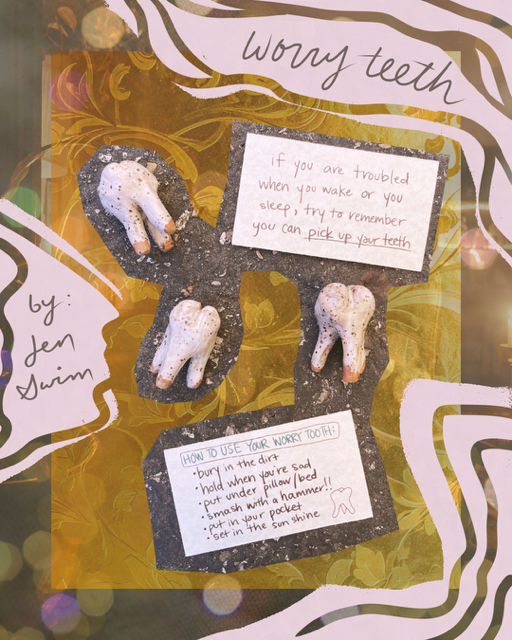 worry teeth
if you are troubled
when you wake or you
sleep, try to remember
you can pick up your teeth
by:
Jen
Swim
HOW TO USE YOUR WORRY TOOTH:
• bury in the dirt
• hold when you're sad
• put under pillow/bed
• smash with a hammer!!
• put in your pocket
• set in the sun shine